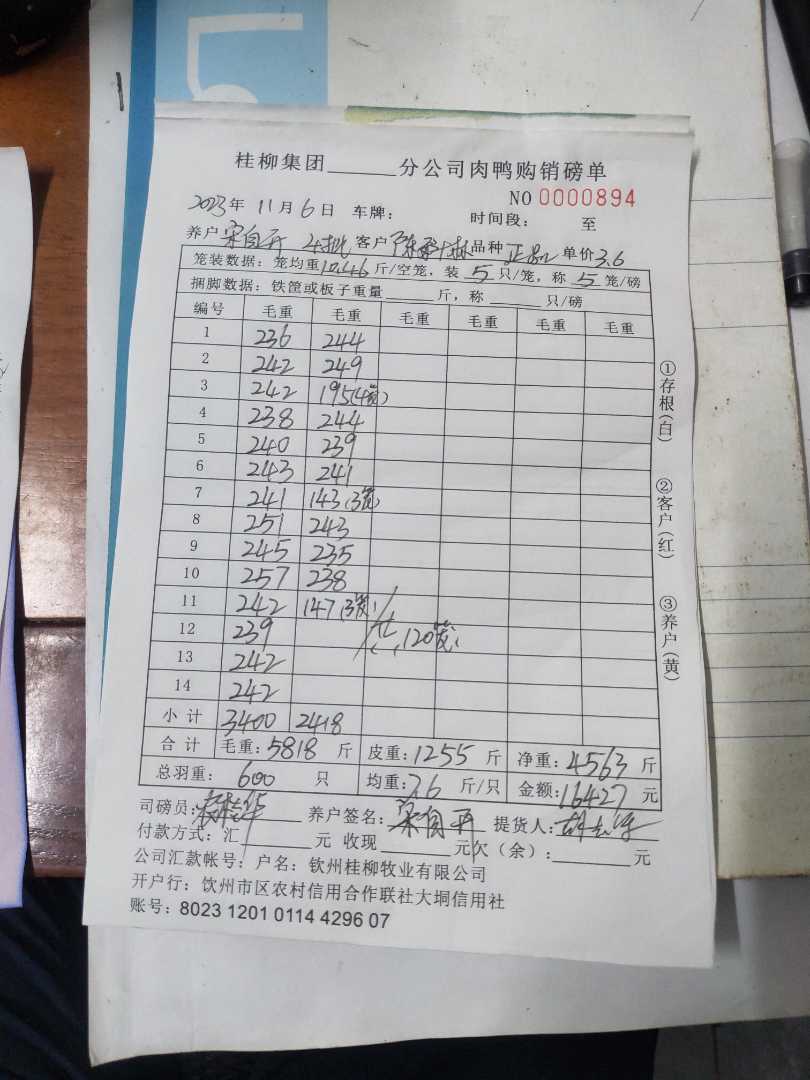 桂柳集团______分公司肉鸭购销磅单
NO 0000894
2023年 11月6日 车牌: 时间段: 至
养户 宋自开 4批 客户 品种 正品 单价 3.6
笼装数据: 笼均重10.46斤/空笼, 装 5 只/笼, 称 5 笼/磅
捆脚数据: 铁筐或板子重量______斤, 称______只/磅
编号 毛重 毛重 毛重 毛重 毛重 毛重
1 236 244
2 242 249
3 242 195(4笼)
4 238 244
5 240 239
6 243 241
7 241 143(3笼)
8 251 243
9 245 235
10 257 238
11 242 147(3笼)
12 239 120笼
13 242
14 242
小计 3400 2418
合计 毛重: 5818 斤 皮重: 1255 斤 净重: 4563 斤
总羽重: 600 只 均重: 7.6 斤/只 金额: 16427 元
司磅员: 养户签名: 宋自开 提货人:
付款方式: 汇______元 收现______元欠(余):______元
公司汇款帐号: 户名: 钦州桂柳牧业有限公司
开户行: 钦州市区农村信用合作联社大垌信用社
账号: 8023 1201 0114 4296 07
①存根(白)
②客户(红)
③养户(黄)